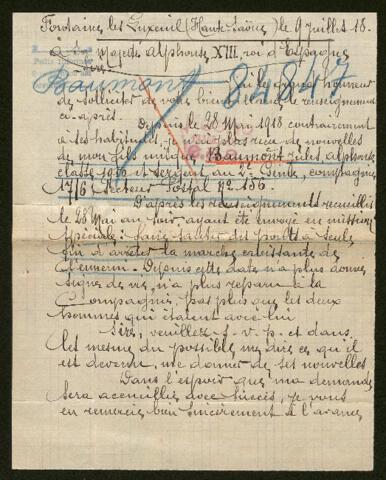 Fontaine les Luxeuil (Haute Saône) le 9 Juillet 18.
A Sa Majesté Alphonse XIII, roi d'Espagne
Beaumont 84847
Sire
J'ai le grand honneur
de solliciter de votre bienveillance le renseignement
ci-après.
Depuis le 28 Mai 1918 contrairement
à ses habitudes, je n'ai plus reçu de nouvelles
de mon fils unique Beaumont Jules Alphonse
classe 1916 et sergent au 2e Génie, compagnie
17/6 Secteur Postal No 156.
D'après les renseignements recueillis
le 28 Mai au soir, ayant été envoyé en mission
spéciale: faire sauter des ponts à seule
fin d'arrêter la marche envahissante de
l'ennemi. Depuis cette date n'a plus donné
signe de vie, n'a plus reparu à la
Compagnie, pas plus que les deux
hommes qui étaient avec lui
Sire, veuillez s. v. p. et dans
la mesure du possible me dire ce qu'il
est devenu, me donner de ses nouvelles
Dans l'espoir que ma demande
sera accueillie avec succès, je vous
en remercie bien sincèrement à l'avance